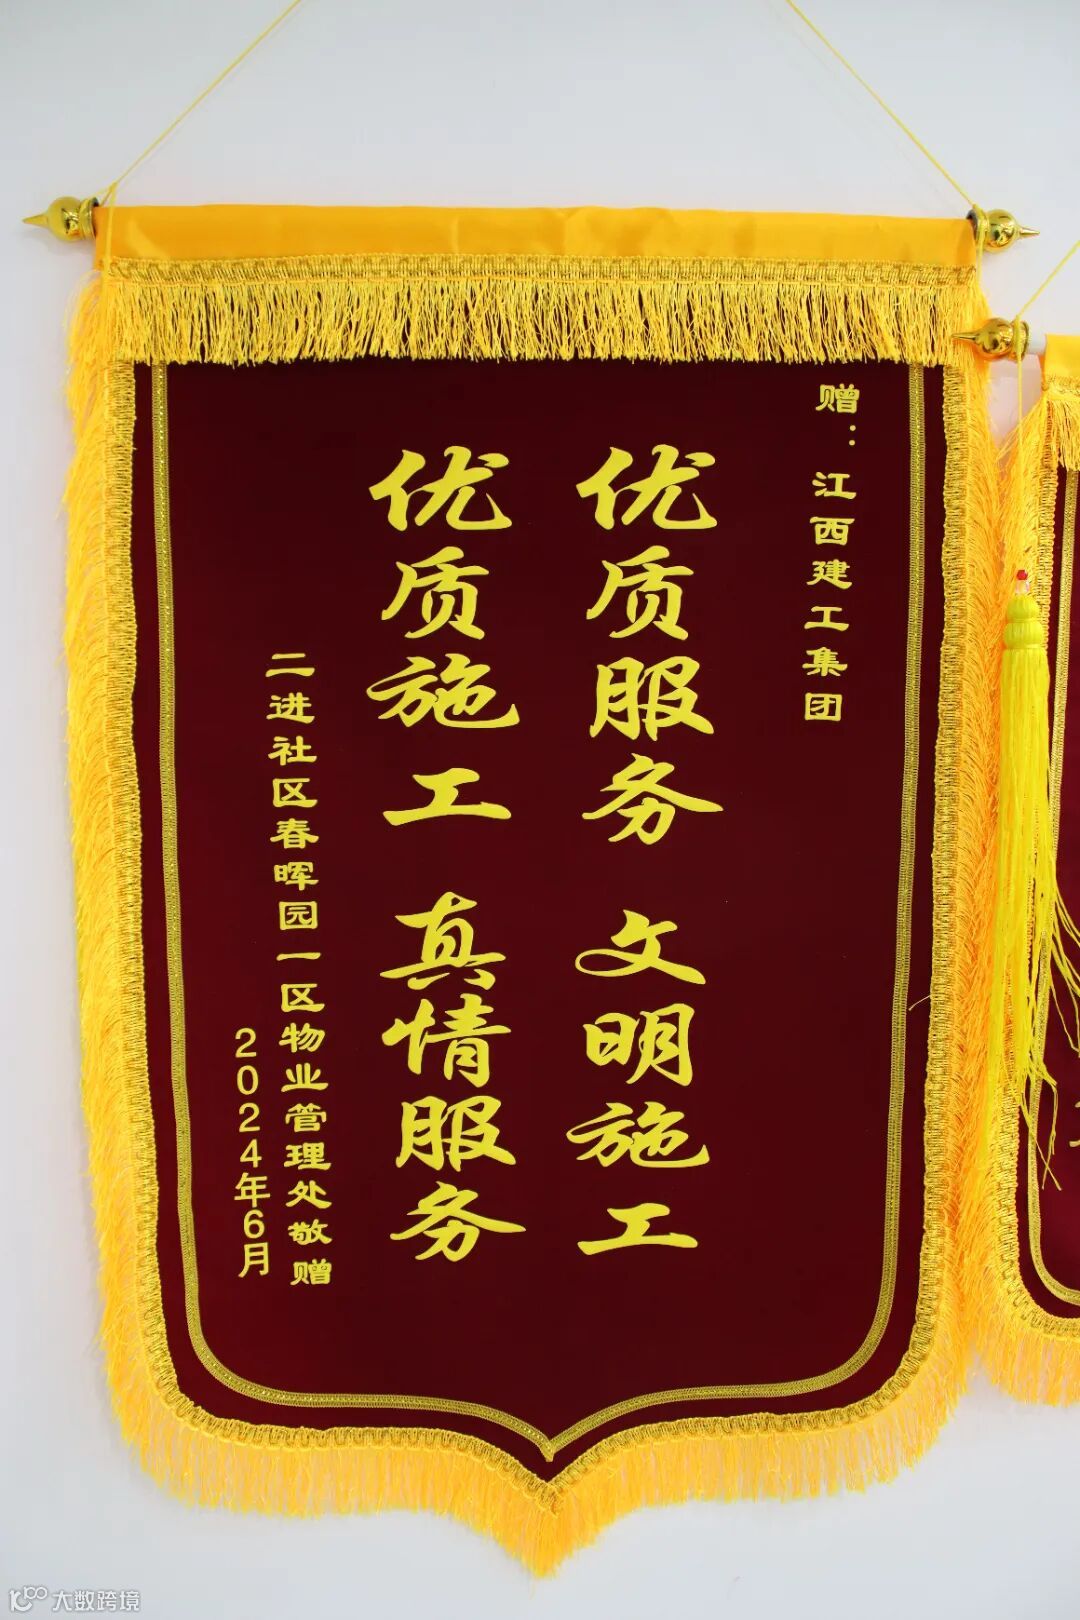 赠：江西建工集团
优质服务 文明施工
优质施工 真情服务
二进社区春晖园一区物业管理处敬赠
2024年6月
大数跨境